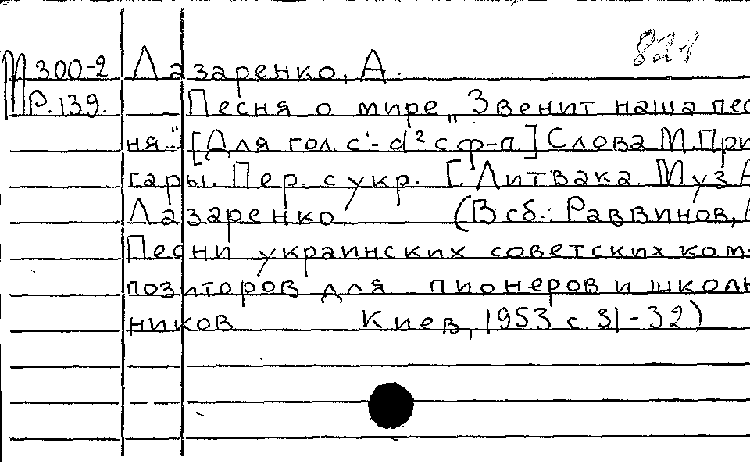 821
М 300-2 Лазаренко, А.
Р.139. Песня о мире „Звенит наша пес
ня." [Для гол. c'-d² с ф-п] Слова М. При
гары. Пер. с укр. Г. Литвака. Муз А
Лазаренко. (В сб.: Раввинов,
Песни украинских советских ком-
позиторов для пионеров и школь
ников Киев, 1953 с. 31-32)